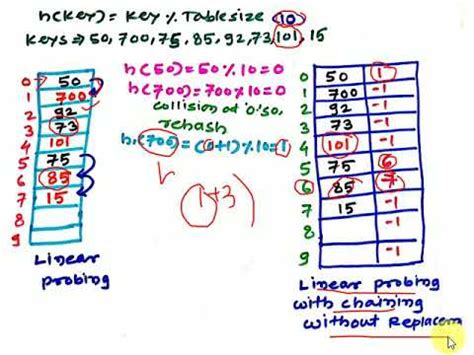 h(key) = key % Tablesize (10)
keys ⇒ 50, 700, 75, 85, 92, 73, 101, 15
h(50) = 50 % 10 = 0
h(700) = 700 % 10 = 0
collision at '0' so,
rehash
h1(700) = (0+1) % 10 = 1
1+3)
0 50
1 700
2 92
3 73
4 101
5 75
6 85
7 15
8
9
Linear
probing
0 50 1
1 700 -1
2 92 -1
3 73 -1
4 101 -1
5 75 6
6 85 7
7 15 -1
8
9 -1
Linear probing
with chaining
without Replacem